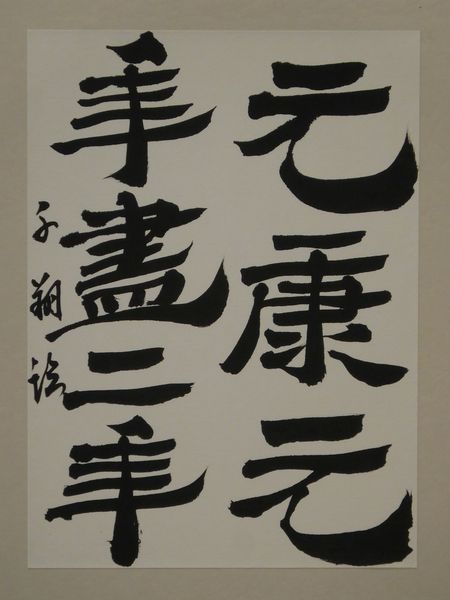 元康元
年盡二年
子翔臨